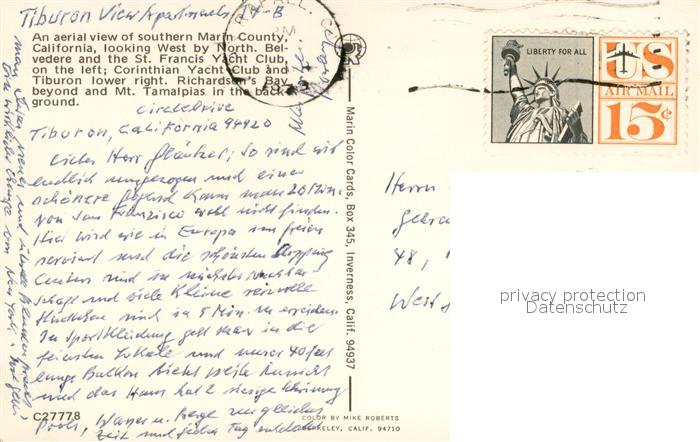 Tiburon View Apartments 14-B
An aerial view of southern Marin County,
California, looking West by North. Bel-
vedere and the St. Francis Yacht Club,
on the left; Corinthian Yacht Club and
Tiburon lower right. Richardson's Bay
beyond and Mt. Tamalpias in the back-
ground.
Circledrive
Tiburon, California 94920
Lieber Herr so sind wir
endlich umgezogen und eine
schönere Gegend kann man 20 Min.
von San Franzisco wohl nicht finden.
Hier wird wie in Europa im freien
serviert und die schönsten Shopping
Centers sind in nächster Nachbar-
schaft und viele kleine reizvolle
sind in 5 Min. zu erreichen.
In Sportkleidung geht man in die
feinsten Lokale und unser 40 feet
lange Balkon bietet weite Aussicht
und das Haus hat 2 riesige Swimming
Pools, Wasser u. Berge zur gleichen
Zeit und jeden Tag
C27778
Marin Color Cards, Box 345, Inverness, Calif. 94937
COLOR BY MIKE ROBERTS
BERKELEY, CALIF. 94710
LIBERTY FOR ALL
US
AIR MAIL
15¢
Herrn
48,
West
privacy protection
Datenschutz